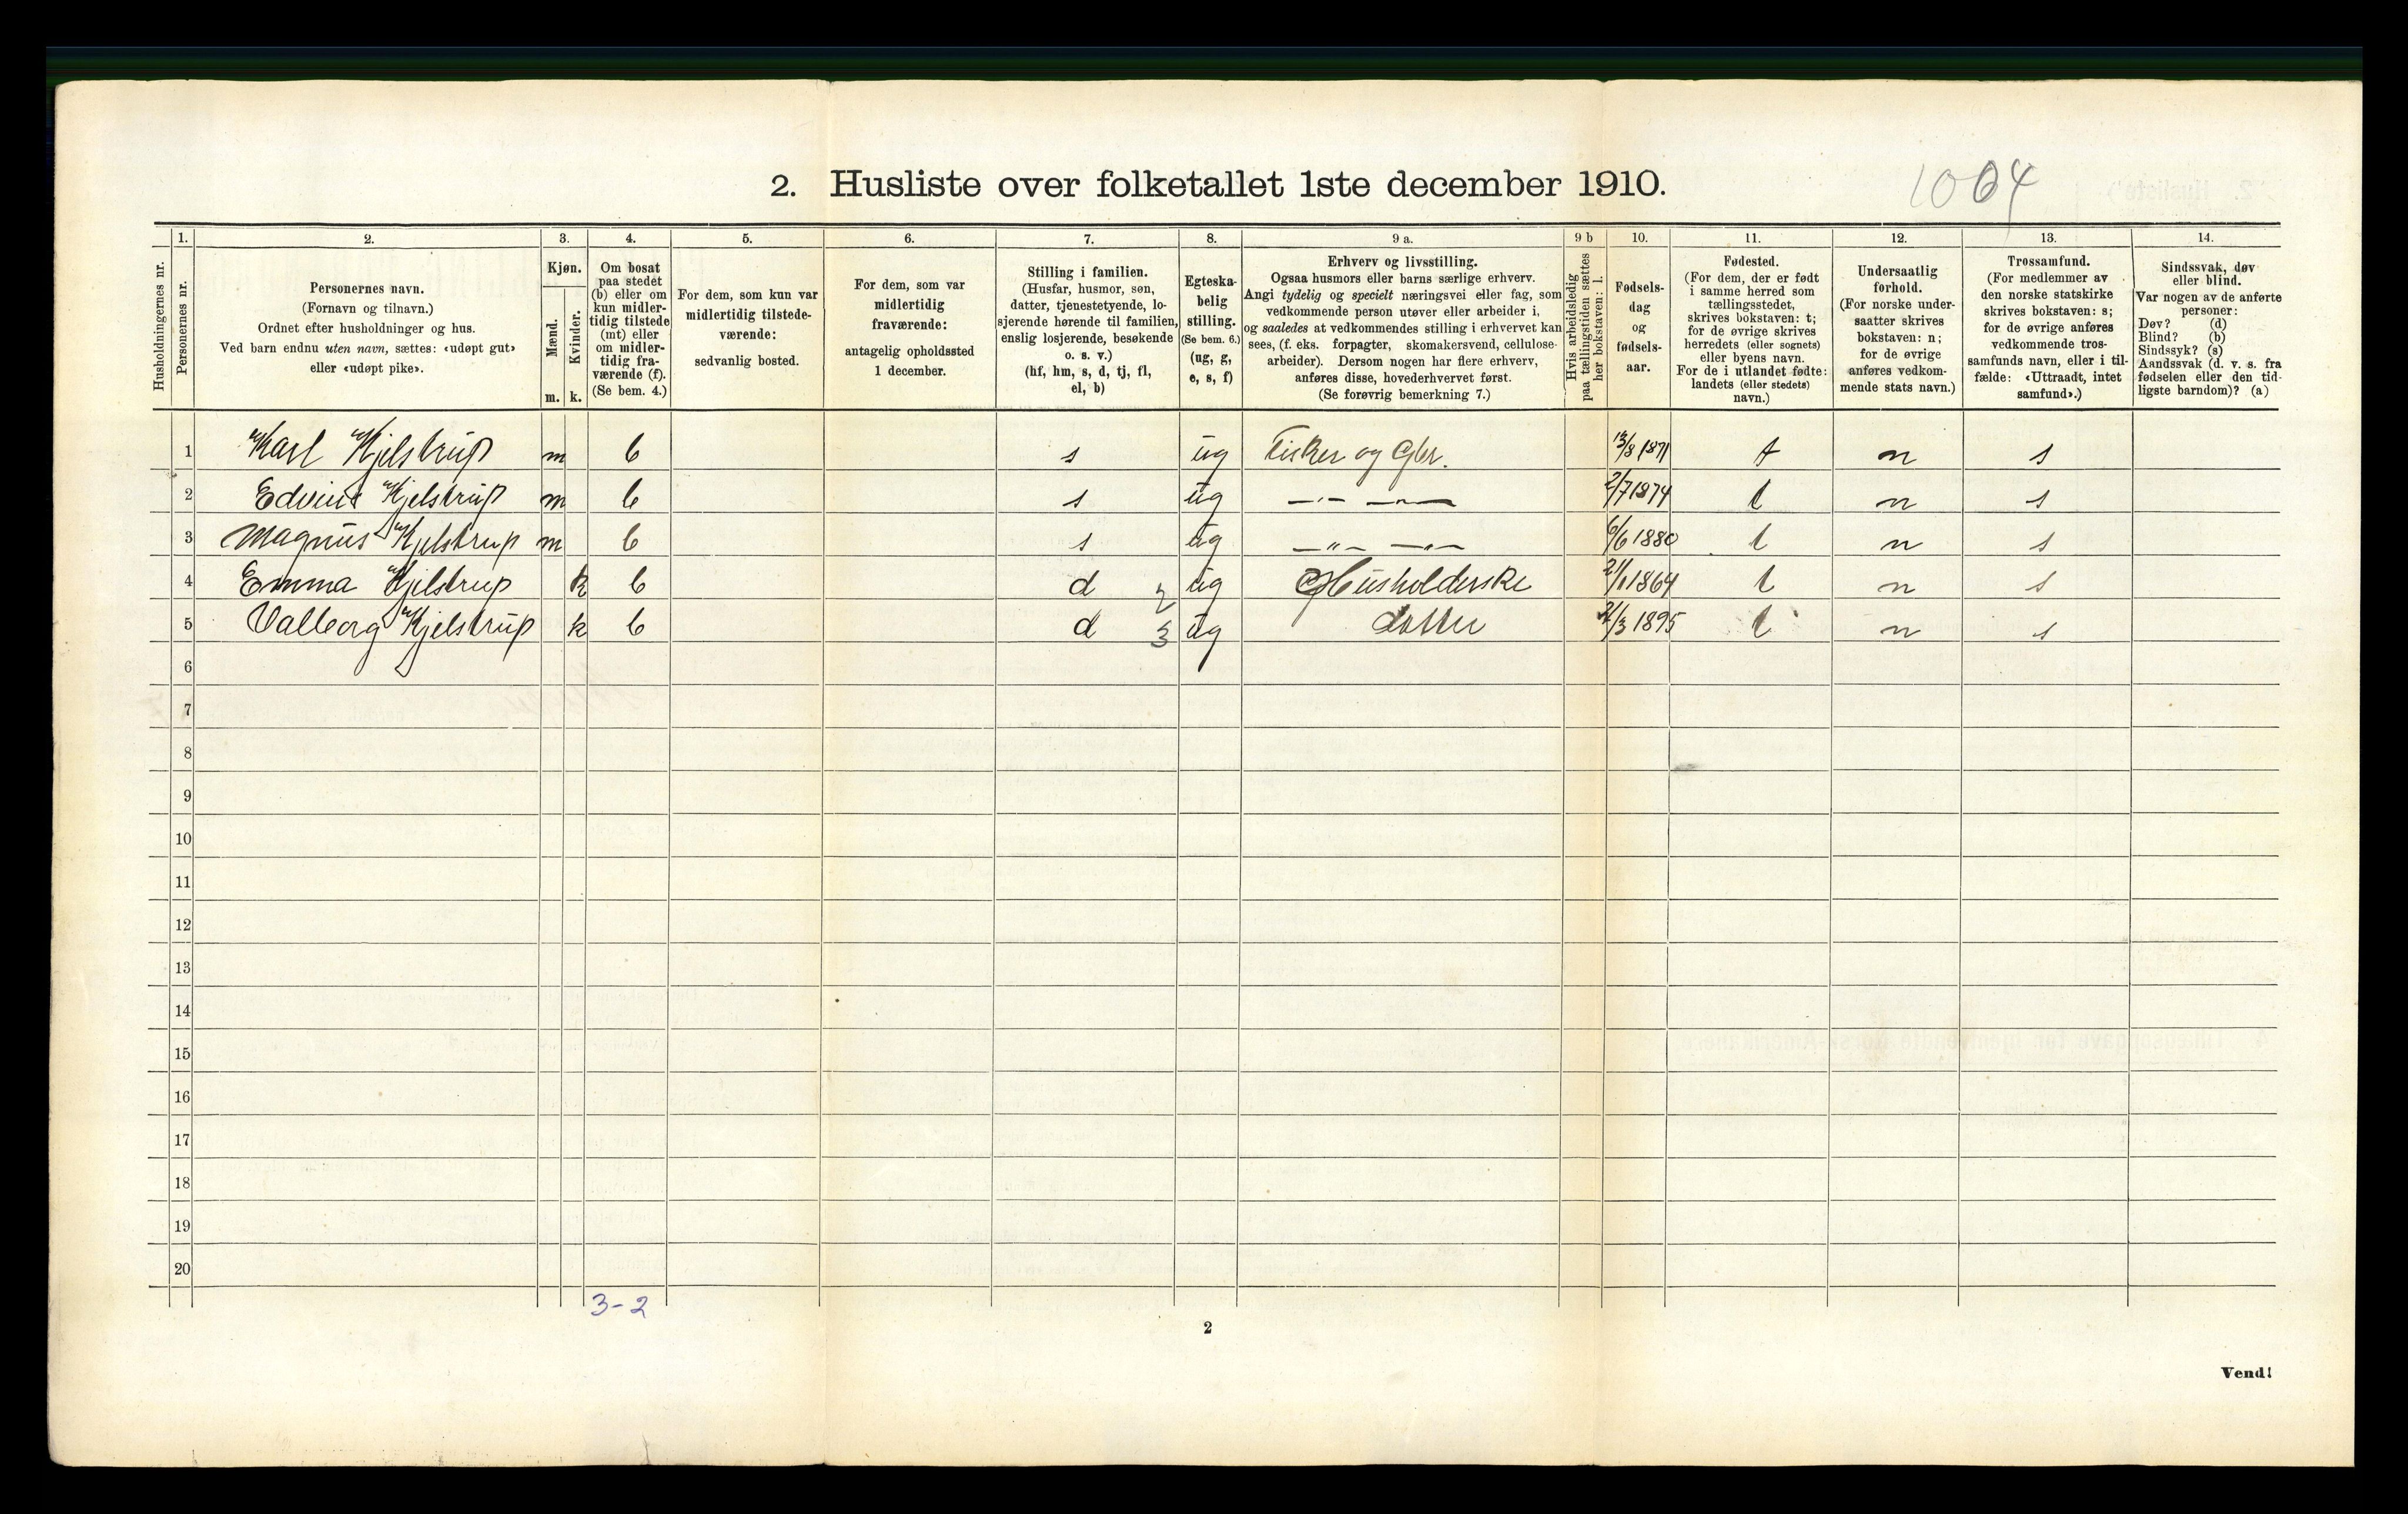 2. Husliste over folketallet 1ste december 1910.
1004
Husholdningernes nr.
1. Personernes nr.
2. Personernes navn. (Fornavn og tilnavn.) Ordnet efter husholdninger og hus. Ved barn endnu uten navn, sættes: «udøpt gut» eller «udøpt pike».
3. Kjøn. Mænd. m. Kvinder. k.
4. Om bosat paa stedet (b) eller om kun midlertidig tilstede (mt) eller om midlertidig fraværende (f). (Se bem. 4.)
5. For dem, som kun var midlertidig tilstedeværende: sedvanlig bosted.
6. For dem, som var midlertidig fraværende: antagelig opholdssted 1 december.
7. Stilling i familien. (Husfar, husmor, søn, datter, tjenestetyende, losjerende hørende til familien, enslig losjerende, besøkende o. s. v.) (hf, hm, s, d, tj, fl, el, b)
8. Egteskabelig stilling. (Se bem. 6.) (ug, g, e, s, f)
9 a. Erhverv og livsstilling. Ogsaa husmors eller barns særlige erhverv. Angi tydelig og specielt næringsvei eller fag, som vedkommende person utøver eller arbeider i, og saaledes at vedkommendes stilling i erhvervet kan sees, (f. eks. forpagter, skomakersvend, cellulosearbeider). Dersom nogen har flere erhverv, anføres disse, hovederhvervet først. (Se forøvrig bemerkning 7.)
9 b Hvis arbeidsledig paa tællingstiden sættes her bokstaven: l.
10. Fødselsdag og fødselsaar.
11. Fødested. (For dem, der er født i samme herred som tællingsstedet, skrives bokstaven: t; for de øvrige skrives herredets (eller sognets) eller byens navn. For de i utlandet fødte: landets (eller stedets) navn.)
12. Undersaatlig forhold. (For norske undersaatter skrives bokstaven: n; for de øvrige anføres vedkommende stats navn.)
13. Trossamfund. (For medlemmer av den norske statskirke skrives bokstaven: s; for de øvrige anføres vedkommende trossamfunds navn, eller i tilfælde: «Uttraadt, intet samfund».)
14. Sindssvak, døv eller blind. Var nogen av de anførte personer: Døv? (d) Blind? (b) Sindssyk? (s) Aandssvak (d. v. s. fra fødselen eller den tidligste barndom)? (a)
1 Karl Kjelstrup m b s ug Fisker og Gbr. 13/8 1871 t n s
2 Edvins Kjelstrup m b s ug —„— —„— 2/7 1874 t n s
3 Magnus Kjelstrup m b s ug —„— —„— 6/6 1880 t n s
4 Emma Kjelstrup k b d 2 ug Husholderske 21/1 1864 t n s
5 Valborg Kjelstrup k b d 3 ug datter 21/3 1895 t n s
6
7
8
9
10
11
12
13
14
15
16
17
18
19
20
3-2
2
Vend!